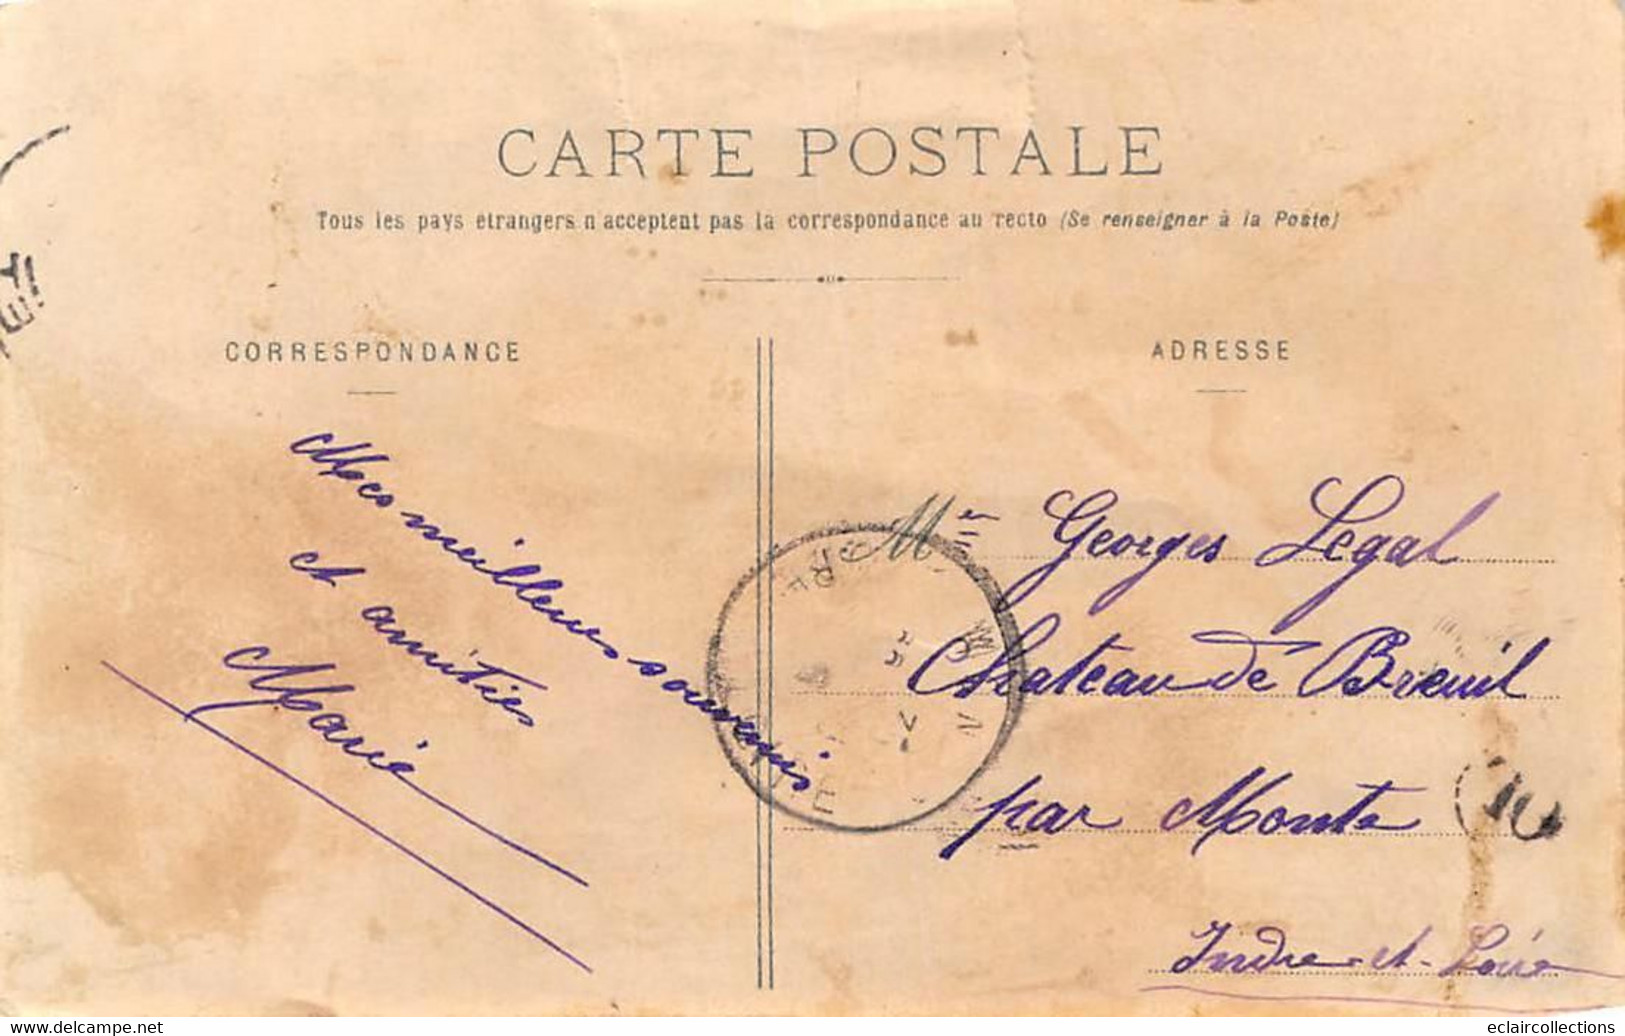 CARTE POSTALE
Tous les pays etrangers n acceptent pas la correspondance au recto (Se renseigner à la Poste)
CORRESPONDANCE
ADRESSE
Mes meilleurs souvenirs
et amitiés
Marie
Georges Legal
Château de Breuil
par Monts
Indre-et-Loire
www.delcampe.net
eclaircollections